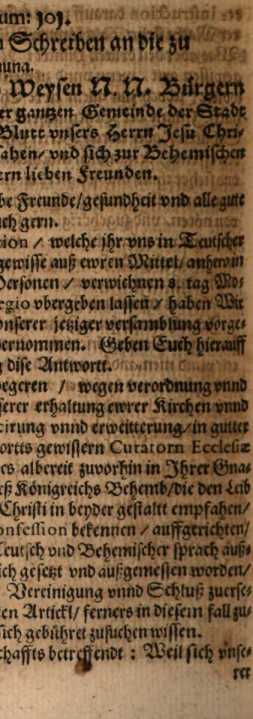 um: 101.
Schreiben an die zu
nung.
Weysen N. N. Bürgern
er gantzen Gemeinde der Stadt
Blutt vnsers Herrn Jesu Chri-
ahen/ vnd sich zur Behemischen
ern lieben Freunden.
be Freunde/gesundheit vnd alle gute
uch gern.
ion / welche jhr vns in Teutscher
gewisse auß ewren Mittel/ anhero in
Personen / verwichnen 8. tag Mo-
rgio vbergeben lassen / haben Wir
nserer jetziger versamblung vorge-
ernommen. Geben Euch hierauff
dise Antwortt.
begeren / wegen verordnung vnnd
serer erhaltung ewrer Kirchen vnnd
cirung vnnd erweitterung/ in gutter
ortts gewissern Curatorn Ecclesiæ
es albereit zuvorhin in Jhrer Gna-
eß Königreichs Behemb/die den Leib
Christi in beyder gestaltt empfahen/
onfession bekennen / auffgerichten/
Teutsch vnd Behemischer sprach auß-
ich gesetzt vnd außgemessen worden/
Vereinigung vnnd Schluß zuerse-
en Artickl/ ferners in diesem fall zu-
sich gebühret zusuchen wissen.
chaffts betreffendt : Weil sich vnse-
rer